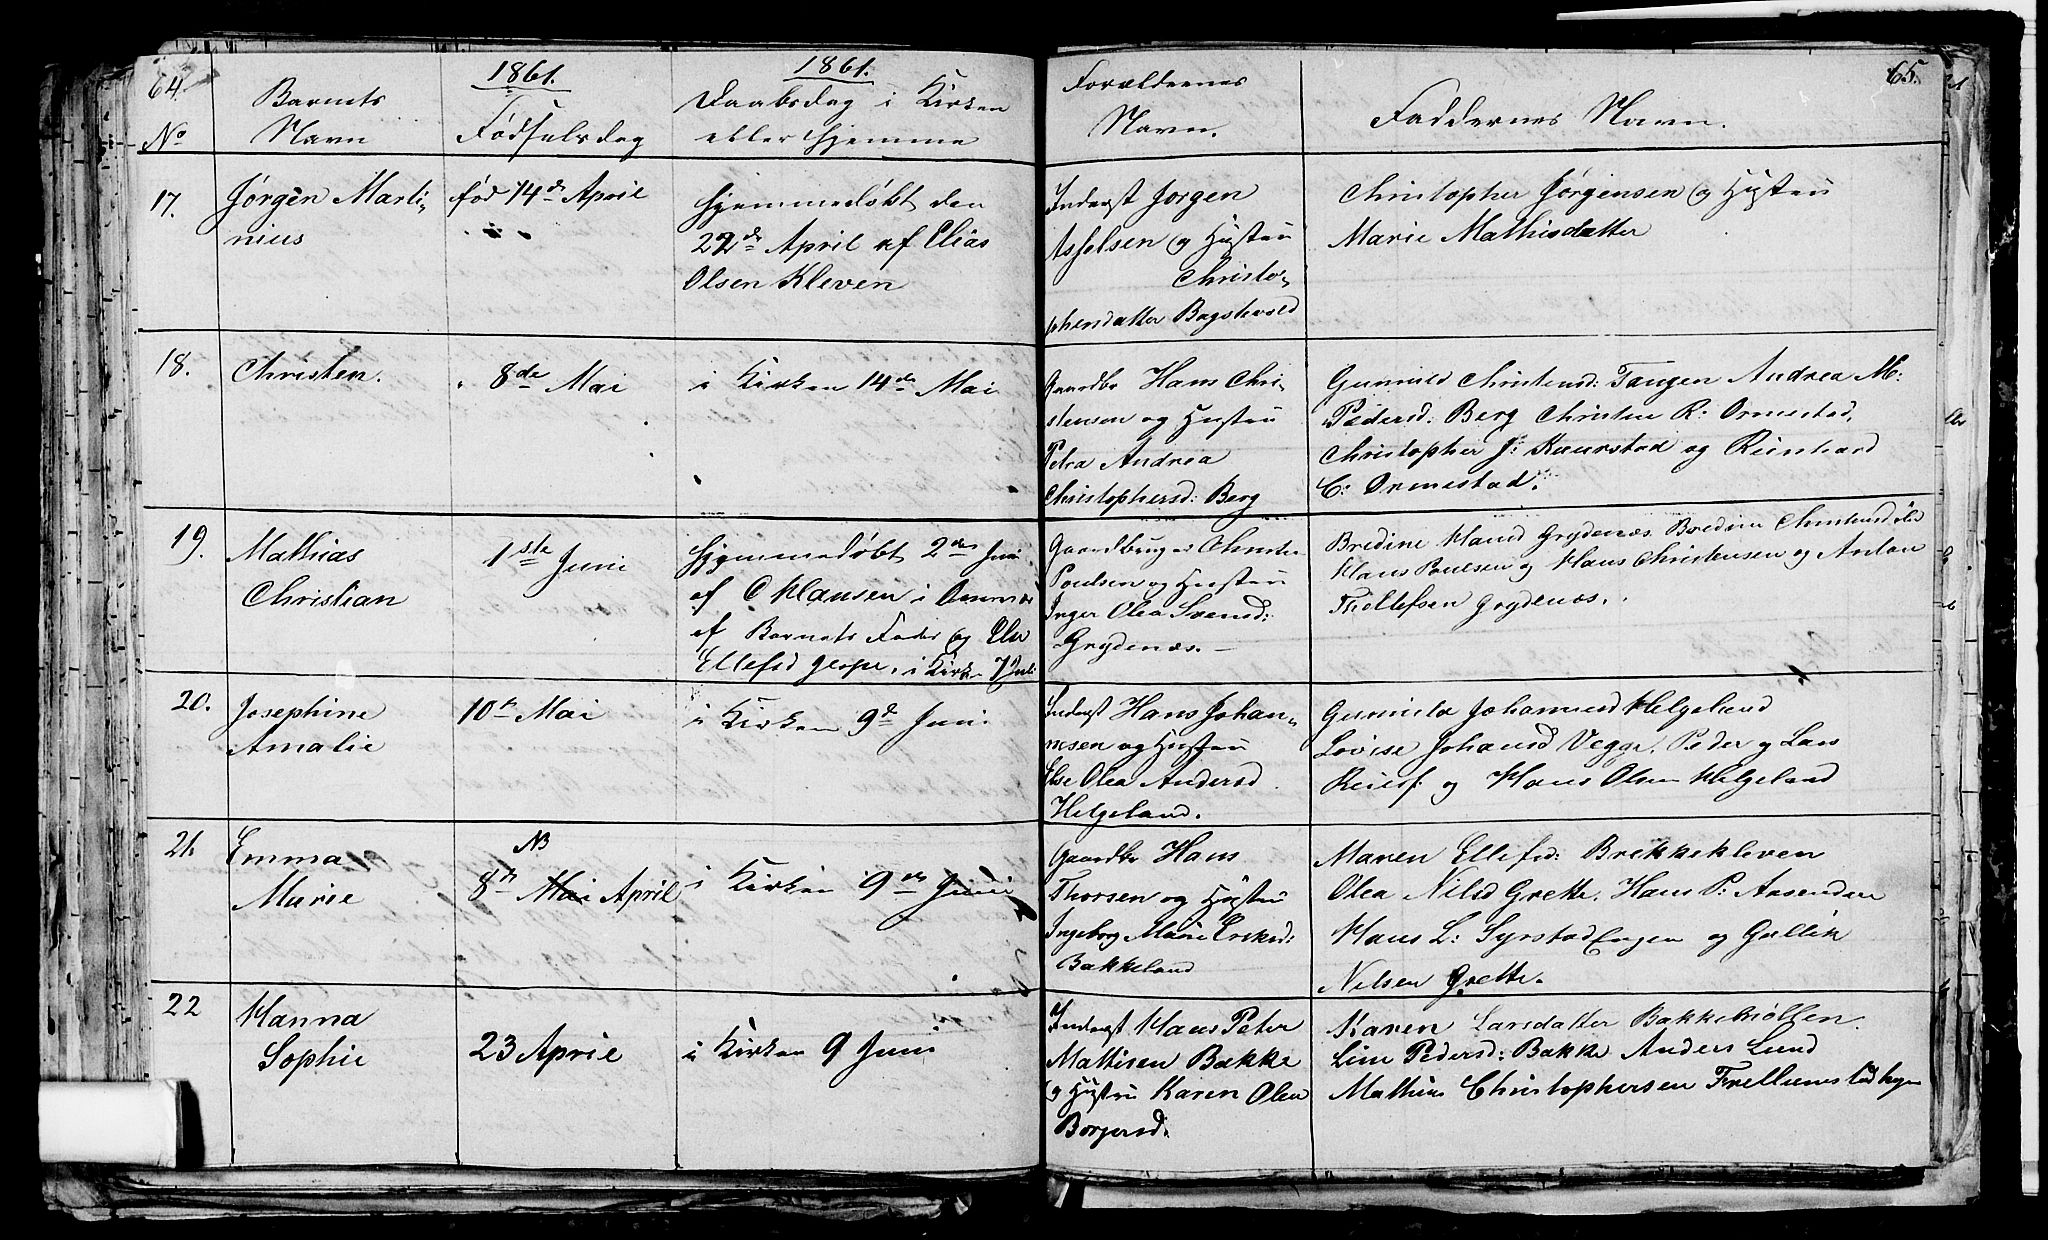 64.
1861.
1861.
No
Barnets
Navn
Fødselsdag
Daabsdag i Kirken
eller hjemme
Forældrenes
Navn.
Faddernes Navn.
65.
17.
Jørgen Marti-
nius
fød 14de April
Hjemmedøbt den
22de April af Elias
Olsen Kleven
Inderst Jørgen
Asselsen og Hustru
Christo-
phersdatter
Christopher Jørgensen og Hustru
Marie Mathisdatter
18.
Christen.
8de Mai
i Kirken 14de Mai
Gaardbr Hans Chri-
stensen og Hustru
Petra Andrea
Christophersd: Berg
Gunild Christensd: Tangen Andrea M:
Pedersd: Berg Christen R: Ormestad,
Christopher J: Ruurstad og Reinhard
C: Ormestad.
19.
Mathias
Christian
1ste Juni
Hjemmedøbt 2den Juni
af C Klausen i
af Barnets Fader og
Ellefsd i Kirken 7 Juli
Gaardbruger Christen
Poulsen og Hustru
Inger Olea Svensd:
Grydenæs. -
Bredine Hansd Grydenæs. Bredine Christensd
Hans Poulsen og Hans Christensen og Anton
Thollefsen Grydenæs.
20.
Josephine
Amalie
10de Mai
i Kirken 9de Juni.
Inderst Hans Johan-
nesen og Hustru
Else Olea Andersd
Helgeland.
Gunild Johannesd Helgeland
Lovise Johansd Vegge, Peder og Lars
og Hans Olsen Helgeland
21
Emma
Marie
NB
8de Mai April
i Kirken 9de Juni
Gaardbr Hans
Thorsen og Hustru
Ingeborg Marie Eriksd:
Bakkeland
Maren Ellefsd: Brekkekleven
Olea Nilsd Grette, Hans P: Aasenden
Hans L: Syrstad Engen og Gullik
Nilsen Grette.
22
Hanna
Sophie
23 April
i Kirken 9 Juni
Inderst Hans Peter
Mathisen Bakke
og Hustru Karen Olea
Borgersd.
Karen Larsdatter Bakkehølten.
Line Pedersd: Bakke Anders Lund
Mathias Christophersen